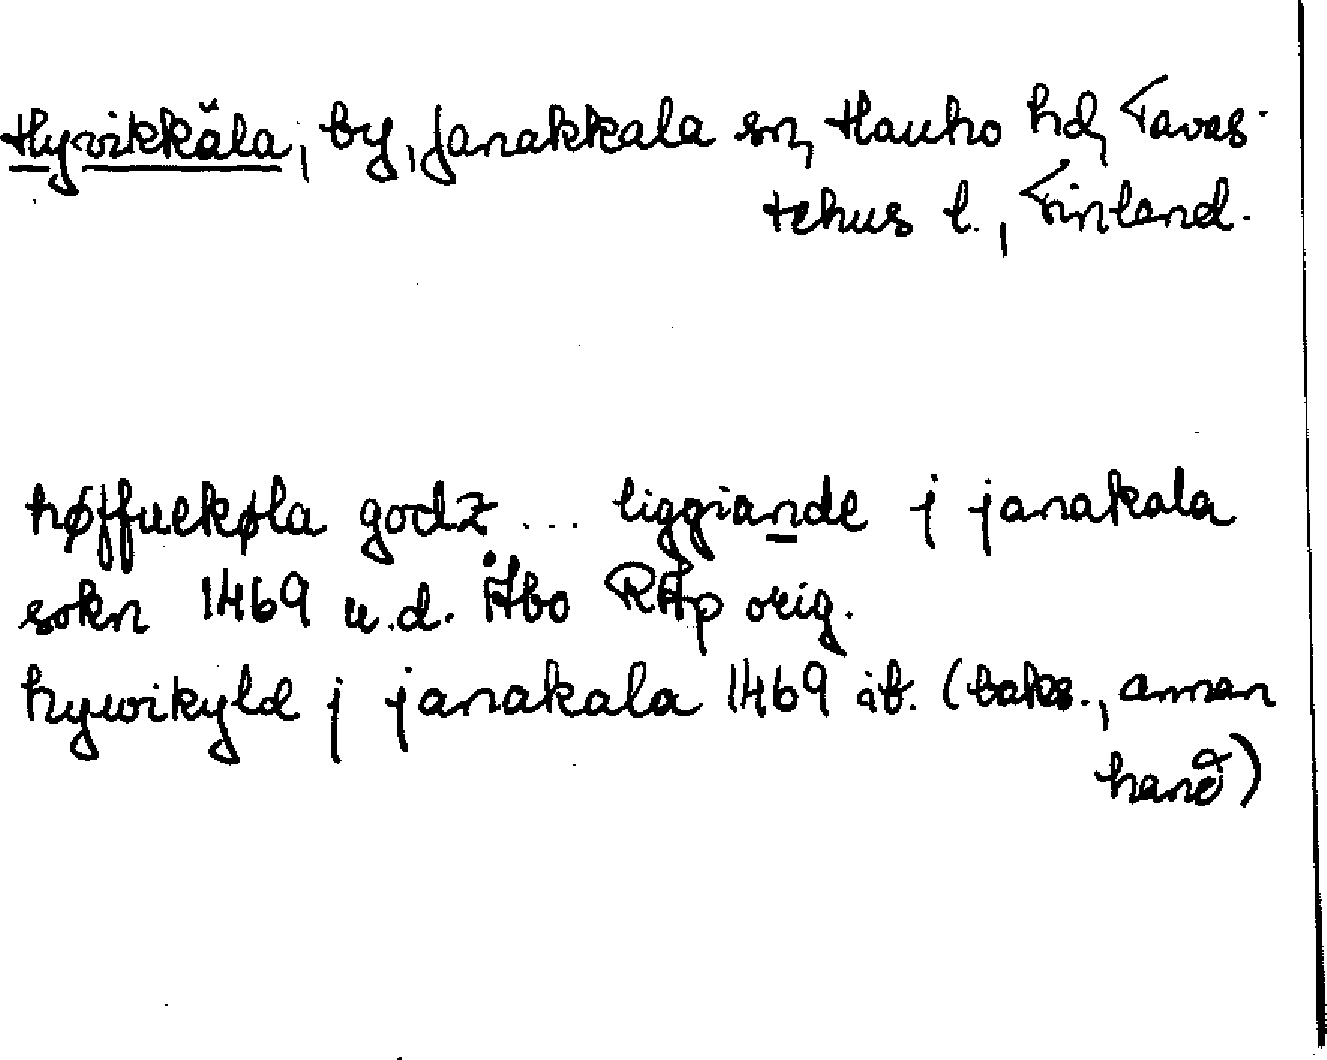 Hyvikkälä, by, Janakkala sn, Hauho hd, Tavas-
tehus l., Finland.
høffuekøla godz ... liggiande j janakala
sokn 1469 u.d. Åbo RAp orig.
hywikylä j janakala 1469 ib. (baks., annan
hand)